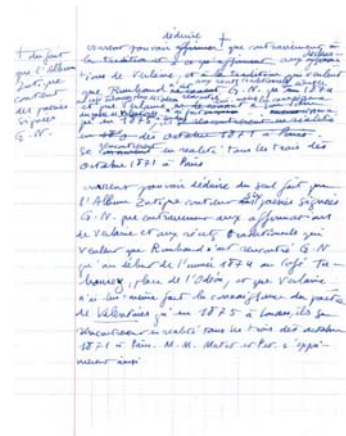 déduire
+ du fait
que l'Album
Zutique
contient
des poésies
signées
G. N.
crurent pouvoir affirmer que contrairement à
la tradition et à ce qu'affirment aux affirma-
tions de Verlaine, et à la tradition qui veulent
que Rimbaud G. N. qu'en 1874
et que Verlaine,
qu'en 1875,
en dès octobre 1871 à Paris.
se rencontrèrent en réalité tous les trois dès
octobre 1871 à Paris
crurent pouvoir déduire du seul fait que
l'Album Zutique contient six poésies signées
G. N. que contrairement aux affirmations
de Verlaine et aux récits traditionnels qui
veulent que Rimbaud n'ait rencontré G. N
qu'au début de l'année 1874 au Café Ta-
bourey, place de l'Odéon, et que Verlaine
n'ai lui-même fait la connaissance du poète
de Valentines qu'en 1875 à Londres, ils se
rencontrèrent en réalité tous les trois dès octobre
1871 à Paris. M. M. et P. s'appu-
yèrent ainsi